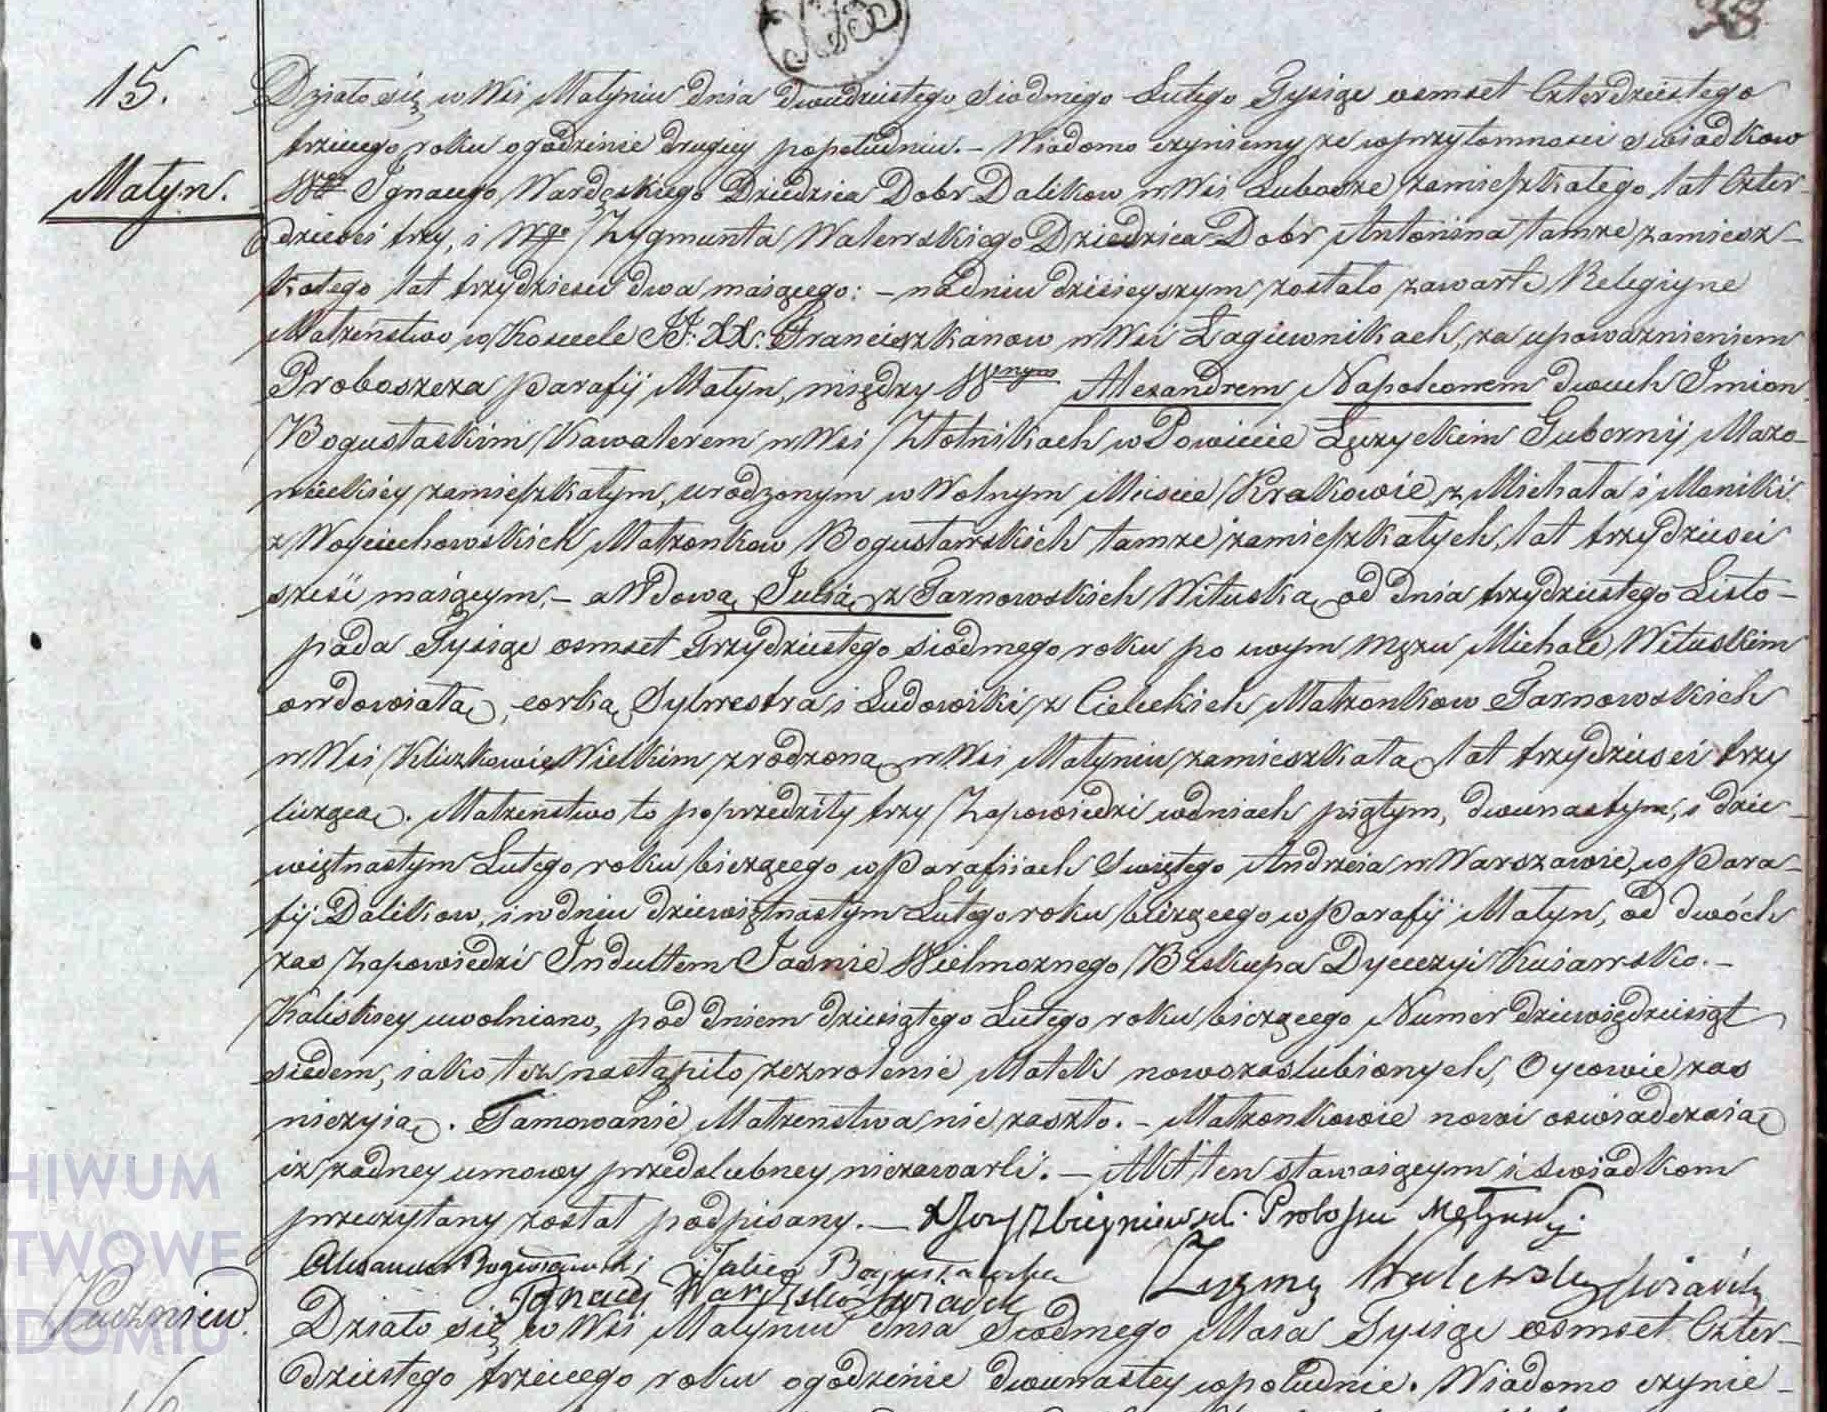 38
15.
Małyn.
Działo się w Wsi Małyniu dnia dwudziestego siodmego Lutego Tysiąc osmset Czterdziestego
trzeciego roku ogodzinie drugiey popołudniu. – Wiadomo czyniemy ze wprzytomnosci swiadkow
Wgo Ignacego Wardęskiego Dziedzica Dobr Dalikow w Wsi Lubocze zamieszkałego, lat Czter-
dziesci trzy, i Wgo Zygmunta Walewskiego Dziedzica Dobr Antonina tamze zamiesz-
kałego lat trzydziesci dwa maiącego: – nadniu dzisieyszym zostało zawarte Religiyne
Małzenstwo w Kosciele JJ: XX: Franciszkanow w Wsi Łagiewnikach, za upowaznieniem
Proboszcza Parafij Małyn, między Wnym Alexandrem Napoleonem dwuch Imion
Bogusłaskim Kawalerem w Wsi Złotnikach w Powiecie Łęczyckim Gubernij Mazo-
wieckiey zamieszkałym, urodzonym w Wolnym Miescie Krakowie, z Michała i Moniki
z Woyciechowskich Małzonkow Bogusławskich tamze zamieszkałych, lat trzydziesci
szesc maiącym, – a Wdową Julią z Tarnowskich Wituską od dnia trzydziestego Listo-
pada Tysiąc osmset Trzydziestego siódmego roku po swym Mężu Michale Wituskim
owdowiałą, corką Sylwestra i Ludowiki z Cieleckich Małzonkow Tarnowskich
w Wsi Kliczkowie Wielkim zrodzoną w Wsi Małyniu zamieszkałą lat trzydziesci trzy
liczącą. Małzenstwo to poprzedziły trzy Zapowiedzi wdniach piątym, dwunastym, i dzie-
więtnastym Lutego roku bieżącego w Parafiiach Swiętego Andrzeia w Warszawie, w Para-
fij Dalikow, i w dniu dziewiętnastym Lutego roku bieżącego w Parafij Małyn, od dwóch
zas Zapowiedzi Indultem Jasnie Wielmoznego Biskupa Dyecezyi Kuiawsko. –
Kaliskiey uwolniono, pod dniem dziesiątego Lutego roku bieżącego Numer dziewięćdziesiąt
siedem, iako tez nastąpiło zezwolenie Matek nowozaslubionych, Oycowie zas
nieżyią. Tamowanie Małzenstwa nie zaszło. – Małzonkowie nowi oswiadczaią
iz zadney umowy przedslubney niezawarli. – Akt ten stawaiącym i swiadkom
przeczytany został podpisany. – Zbigniewski Proboszcz Małyński.
Alexander Bogusławski Julia Bogusławska Zygmunt Walewski swiadek
Ignacy Wardęski Swiadek
Kuczniew.
Działo się w Wsi Małyniu dnia Siodmego Marca Tysiąc osmset Czter-
dziestego trzeciego roku ogodzinie dwunastey wpołudnie. Wiadomo czynie-
HIWUM
TWOWE
ADOMIU